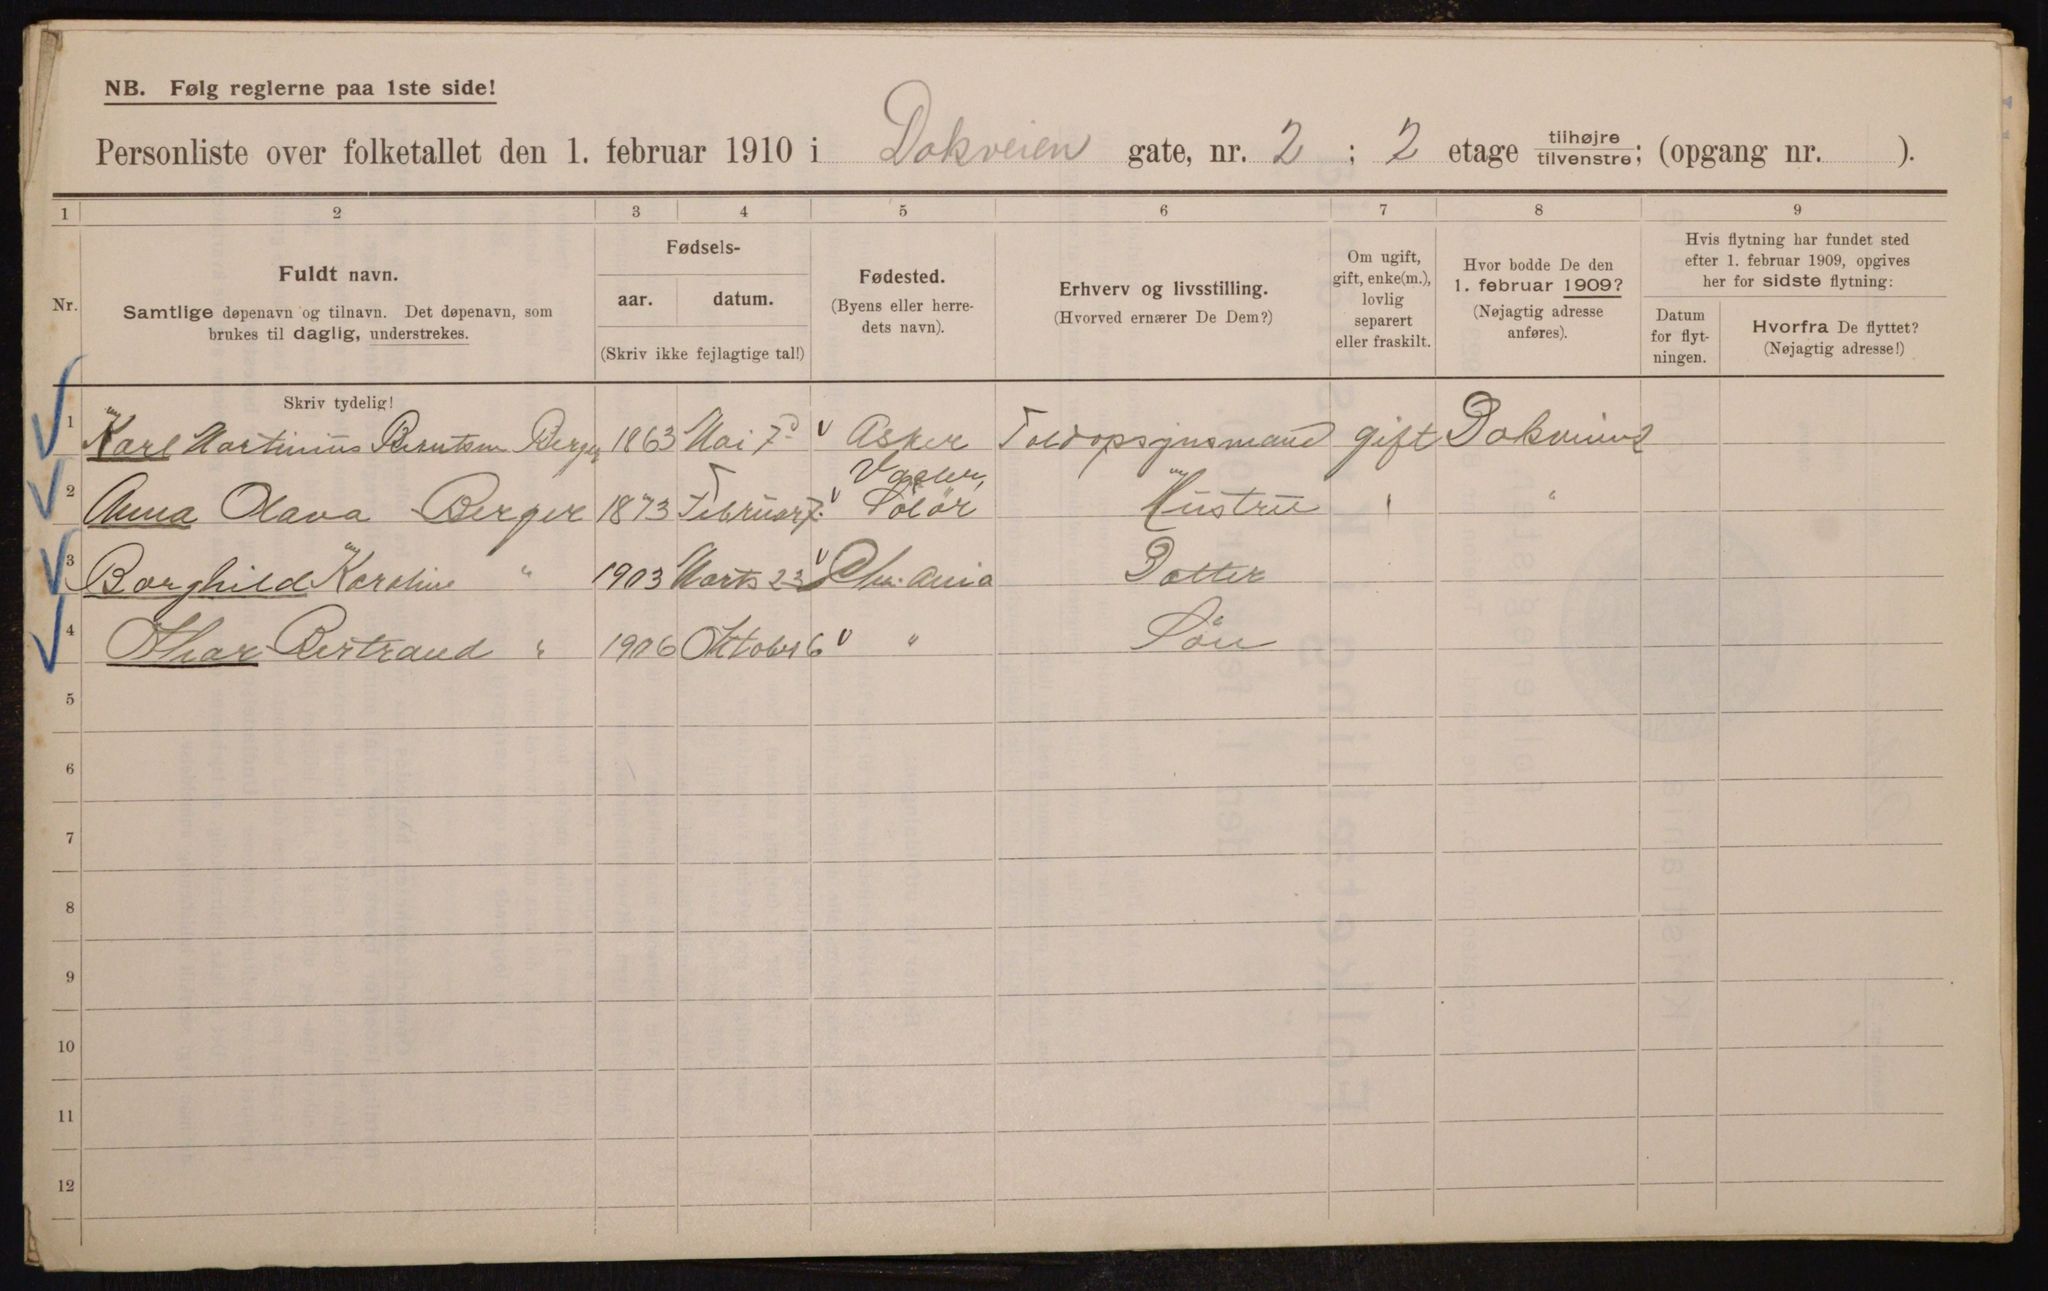 NB. Følg reglerne paa 1ste side!
Personliste over folketallet den 1. februar 1910 i Dokveien gate, nr. 2 ; 2 etage tilhøjre tilvenstre; (opgang nr. ).
1 2 3 4 5 6 7 8 9
Nr.
Fuldt navn.
Samtlige døpenavn og tilnavn. Det døpenavn, som
brukes til daglig, understrekes.
Fødsels-
aar. datum.
(Skriv ikke fejlagtige tal!)
Fødested.
(Byens eller herre-
dets navn).
Erhverv og livsstilling.
(Hvorved ernærer De Dem?)
Om ugift,
gift, enke(m.),
lovlig
separert
eller fraskilt.
Hvor bodde De den
1. februar 1909?
(Nøjagtig adresse
anføres).
Hvis flytning har fundet sted
efter 1. februar 1909, opgives
her for sidste flytning:
Datum
for flyt-
ningen.
Hvorfra De flyttet?
(Nøjagtig adresse!)
Skriv tydelig!
1 Karl Martinius Berntsen Berger 1863 Mai 7d Asker Toldopsynsmand gift Dokveien 2
2 Anna Olava Berger 1873 Februar 7. Vaaler, Solør Hustru " "
3 Borghild Karoline " 1903 Marts 23 Chr.ania Datter
4 Othar Bertrand " 1906 Oktober 6 " Søn
5
6
7
8
9
10
11
12